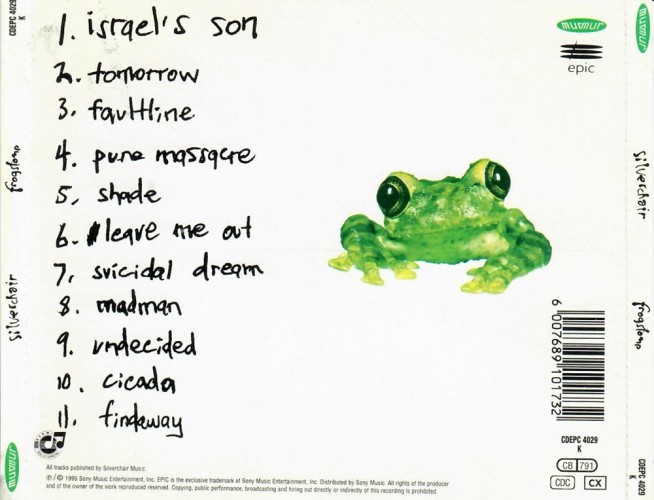 CDEPC 4029
K
frogstomp
silverchair
murmur
1. israel's son
2. tomorrow
3. faultline
4. pure massacre
5. shade
6. leave me out
7. suicidal dream
8. madman
9. undecided
10. cicada
11. findaway
All tracks published by Silverchair Music.
℗/© 1995 Sony Music Entertainment, Inc. EPIC is the exclusive trademark of Sony Music Entertainment, Inc. Distributed by Sony Music. All rights of the producer
and of the owner of the work reproduced reserved. Copying, public performance, broadcasting and hiring out directly or indirectly of this recording is prohibited.
murmur
epic
6 007689 101732
CDEPC 4029
K
CB 791
CDC CX
murmur
silverchair
frogstomp
CDEPC 4029
K